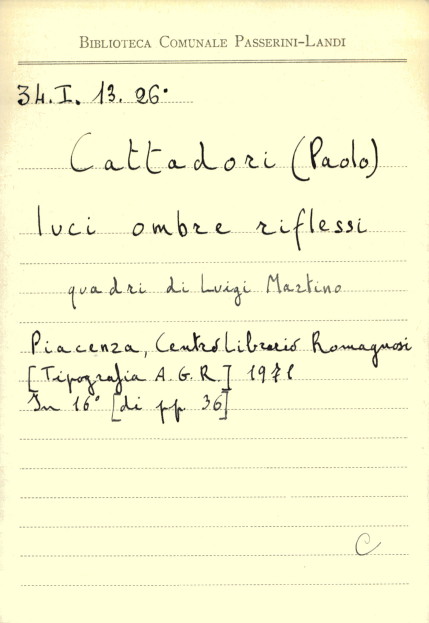 BIBLIOTECA COMUNALE PASSERINI-LANDI
34.I. 13. 26°
Cattadori (Paolo)
luci ombre riflessi
quadri di Luigi Martino
Piacenza, Centro Librario Romagnosi
[Tipografia A. G. R.]
In 16° [di pp. 36]
C